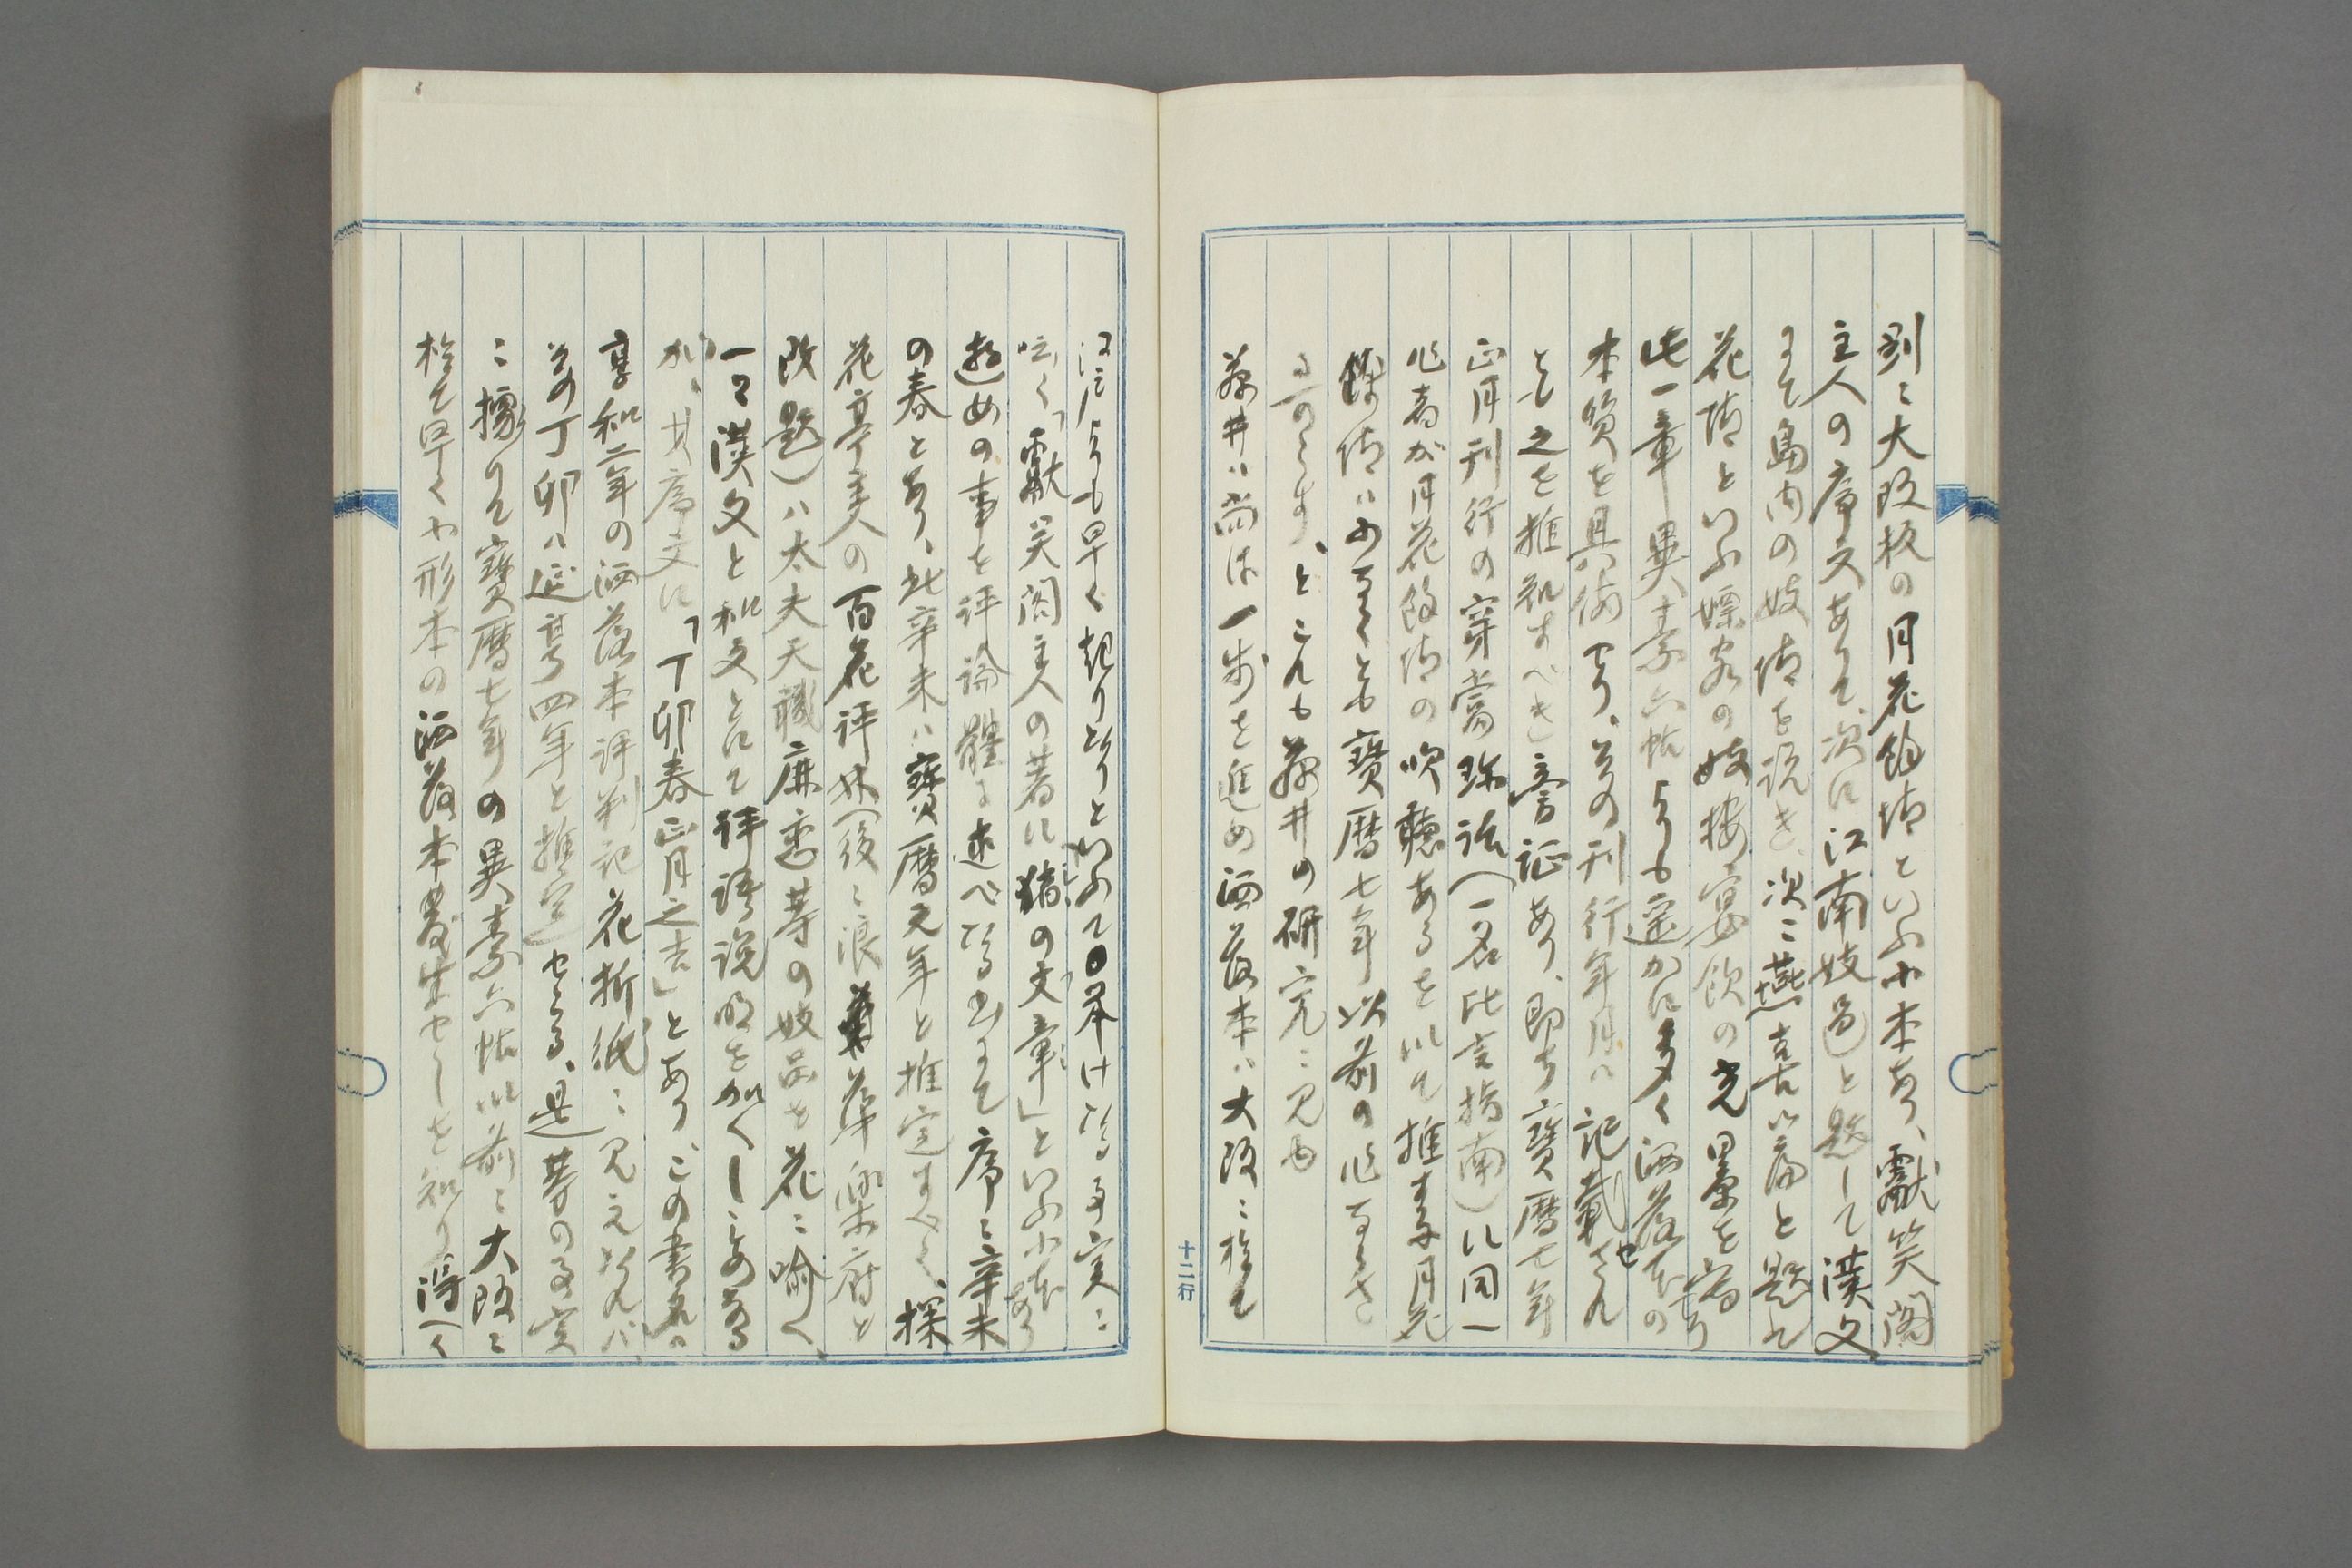 別ニ大阪板の月花餘情といふ小本あり、獻笑閣
主人の序文ありて、次に江南妓邑と題して漢文
にて島内の妓情を説き、次ニ燕喜篇と題して
花情といふ嫖客の妓接宴飲の光景を寫せり
此一章異素六帖よりも遥かに多く洒落本の
本質を具備せり、其の刊行年月ハ記載せざれ
ども之を推知すべき旁証あり、即ち寳暦七年
正月刊行の穿當珍話(一名比言指南)に同一
作者が月花餘情の吹聴あるを以て推す月花
餘情ハ少なくとも寳暦七年以前の作なるべき
とこれも藤井の研究ニ見ゆ
藤井ハ尚ほ一歩を進め洒落本ハ大阪ニ於て
江戸よりも早く起りたりといふて日本ける事実ニ
云く「獻笑閣主人の著に猪の文章」といふ小本あり
遊めの事を評論體に述べたる書にて序ニ辛未
の春とあり、此辛未ハ寳暦元年と推定すべく、探
花亭主人の百花評林(後ニ浪華 楽府と
改題)ハ太夫天職廉恋等の妓品を花ニ喩へ、
一々漢文と和文とにて評語説明を加へしものなる
が、其序文に「丁卯春正月之吉」とあり、この書名ハ
享和二年の洒落本評判記花折紙ニ見えたれバ、
其の丁卯ハ延享四年と推定せらる、是等の事実
ニ據りて寳暦七年の異素六帖以前ニ大阪ニ
於て早く小形本の洒落本発生せしを知り得べく
十二行